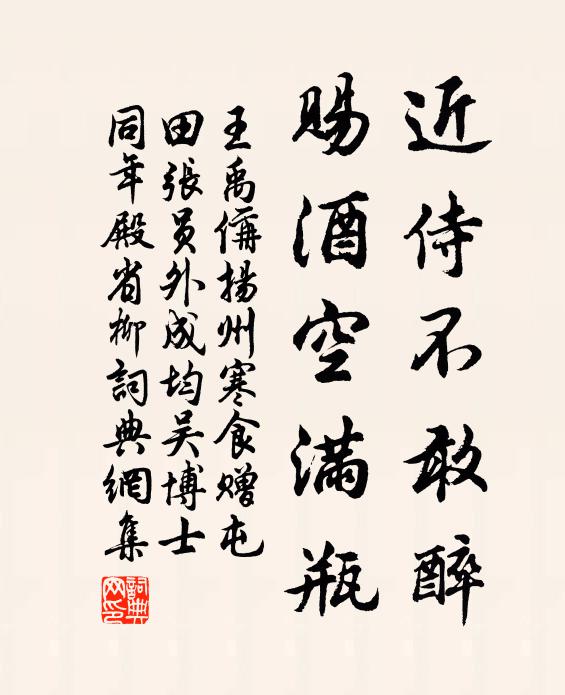 近侍不敢醉
賜酒空滿瓶
王禹偁揚州寒食赠屯
田張員外成均吴博士
同年殿省柳詞典網集
詞典网印